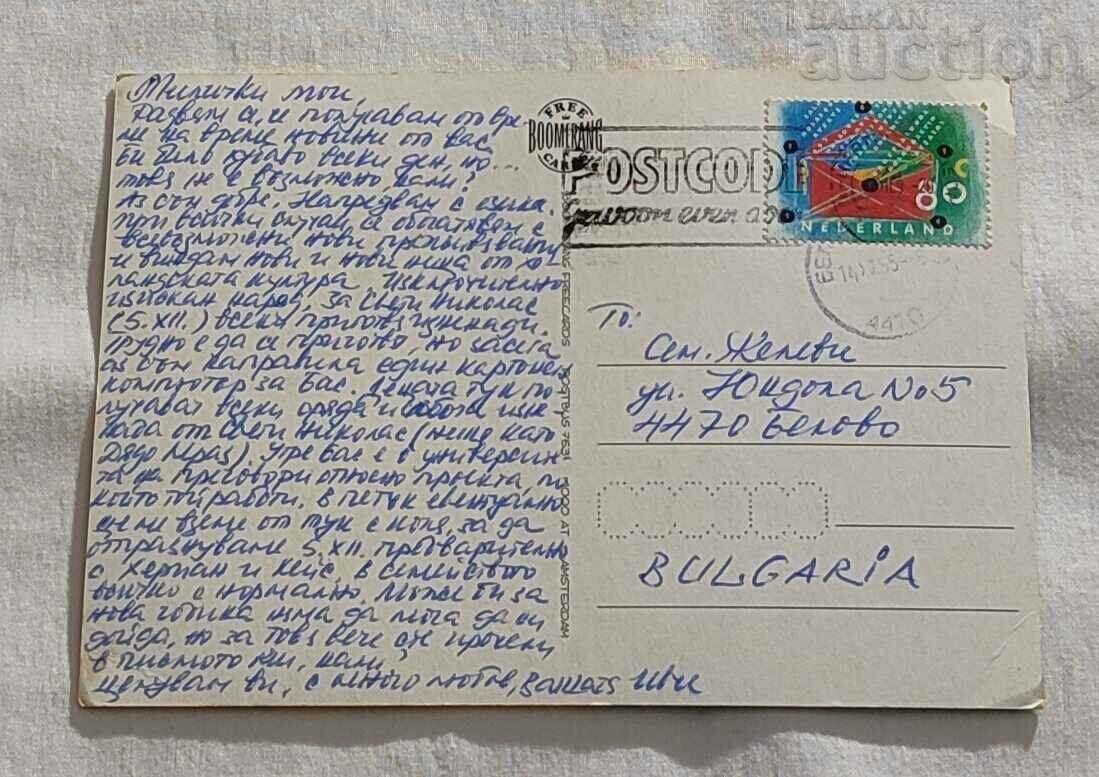 BALKAN
auction
Милички мои,
Радвам се, че получавам от вре-
ме на време новини от вас
Би било хубаво всеки ден, но...
това не е възможно, нали?
Аз съм добре. Напредвам с езика.
При всички случаи се обогатявам с
всевъзможни нови преживявания
и виждам нови и нови неща от хо-
ландската култура. Изключително
изискан народ, за Свети Николас
(5.XII.) всеки приготвя изненади.
Трудно е да се приготви, но засега
аз съм направила един картонен
компютър за вас. Децата тук по-
лучават всеки сряда и събота изне-
нада от Свети Николас (нещо като
Дядо Мраз). Утре Бас е в университе-
та на преговори относно проекта, по
който той работи. В петък евентуално
ще ни вземе от тук с коля, за да
отпразнуваме 5.XII. предварително
с Херман и Кейс. В семейството
всичко е нормално. Може би за
нова година няма да мога да си
дойда, но за това вече сте прочели
в писмото ми, нали?
Целувам ви, с много любов, Вашата Иви
FREE
BOOMERANG
CARDS
BOOMERANG FREECARDS POSTBUS 7531 1000 AT AMSTERDAM
POSTCODE
gewoon even
80
NEDERLAND
4470
To:
Сем. Желеви
ул. Юндола No 5
4470 Белово
BULGARIA